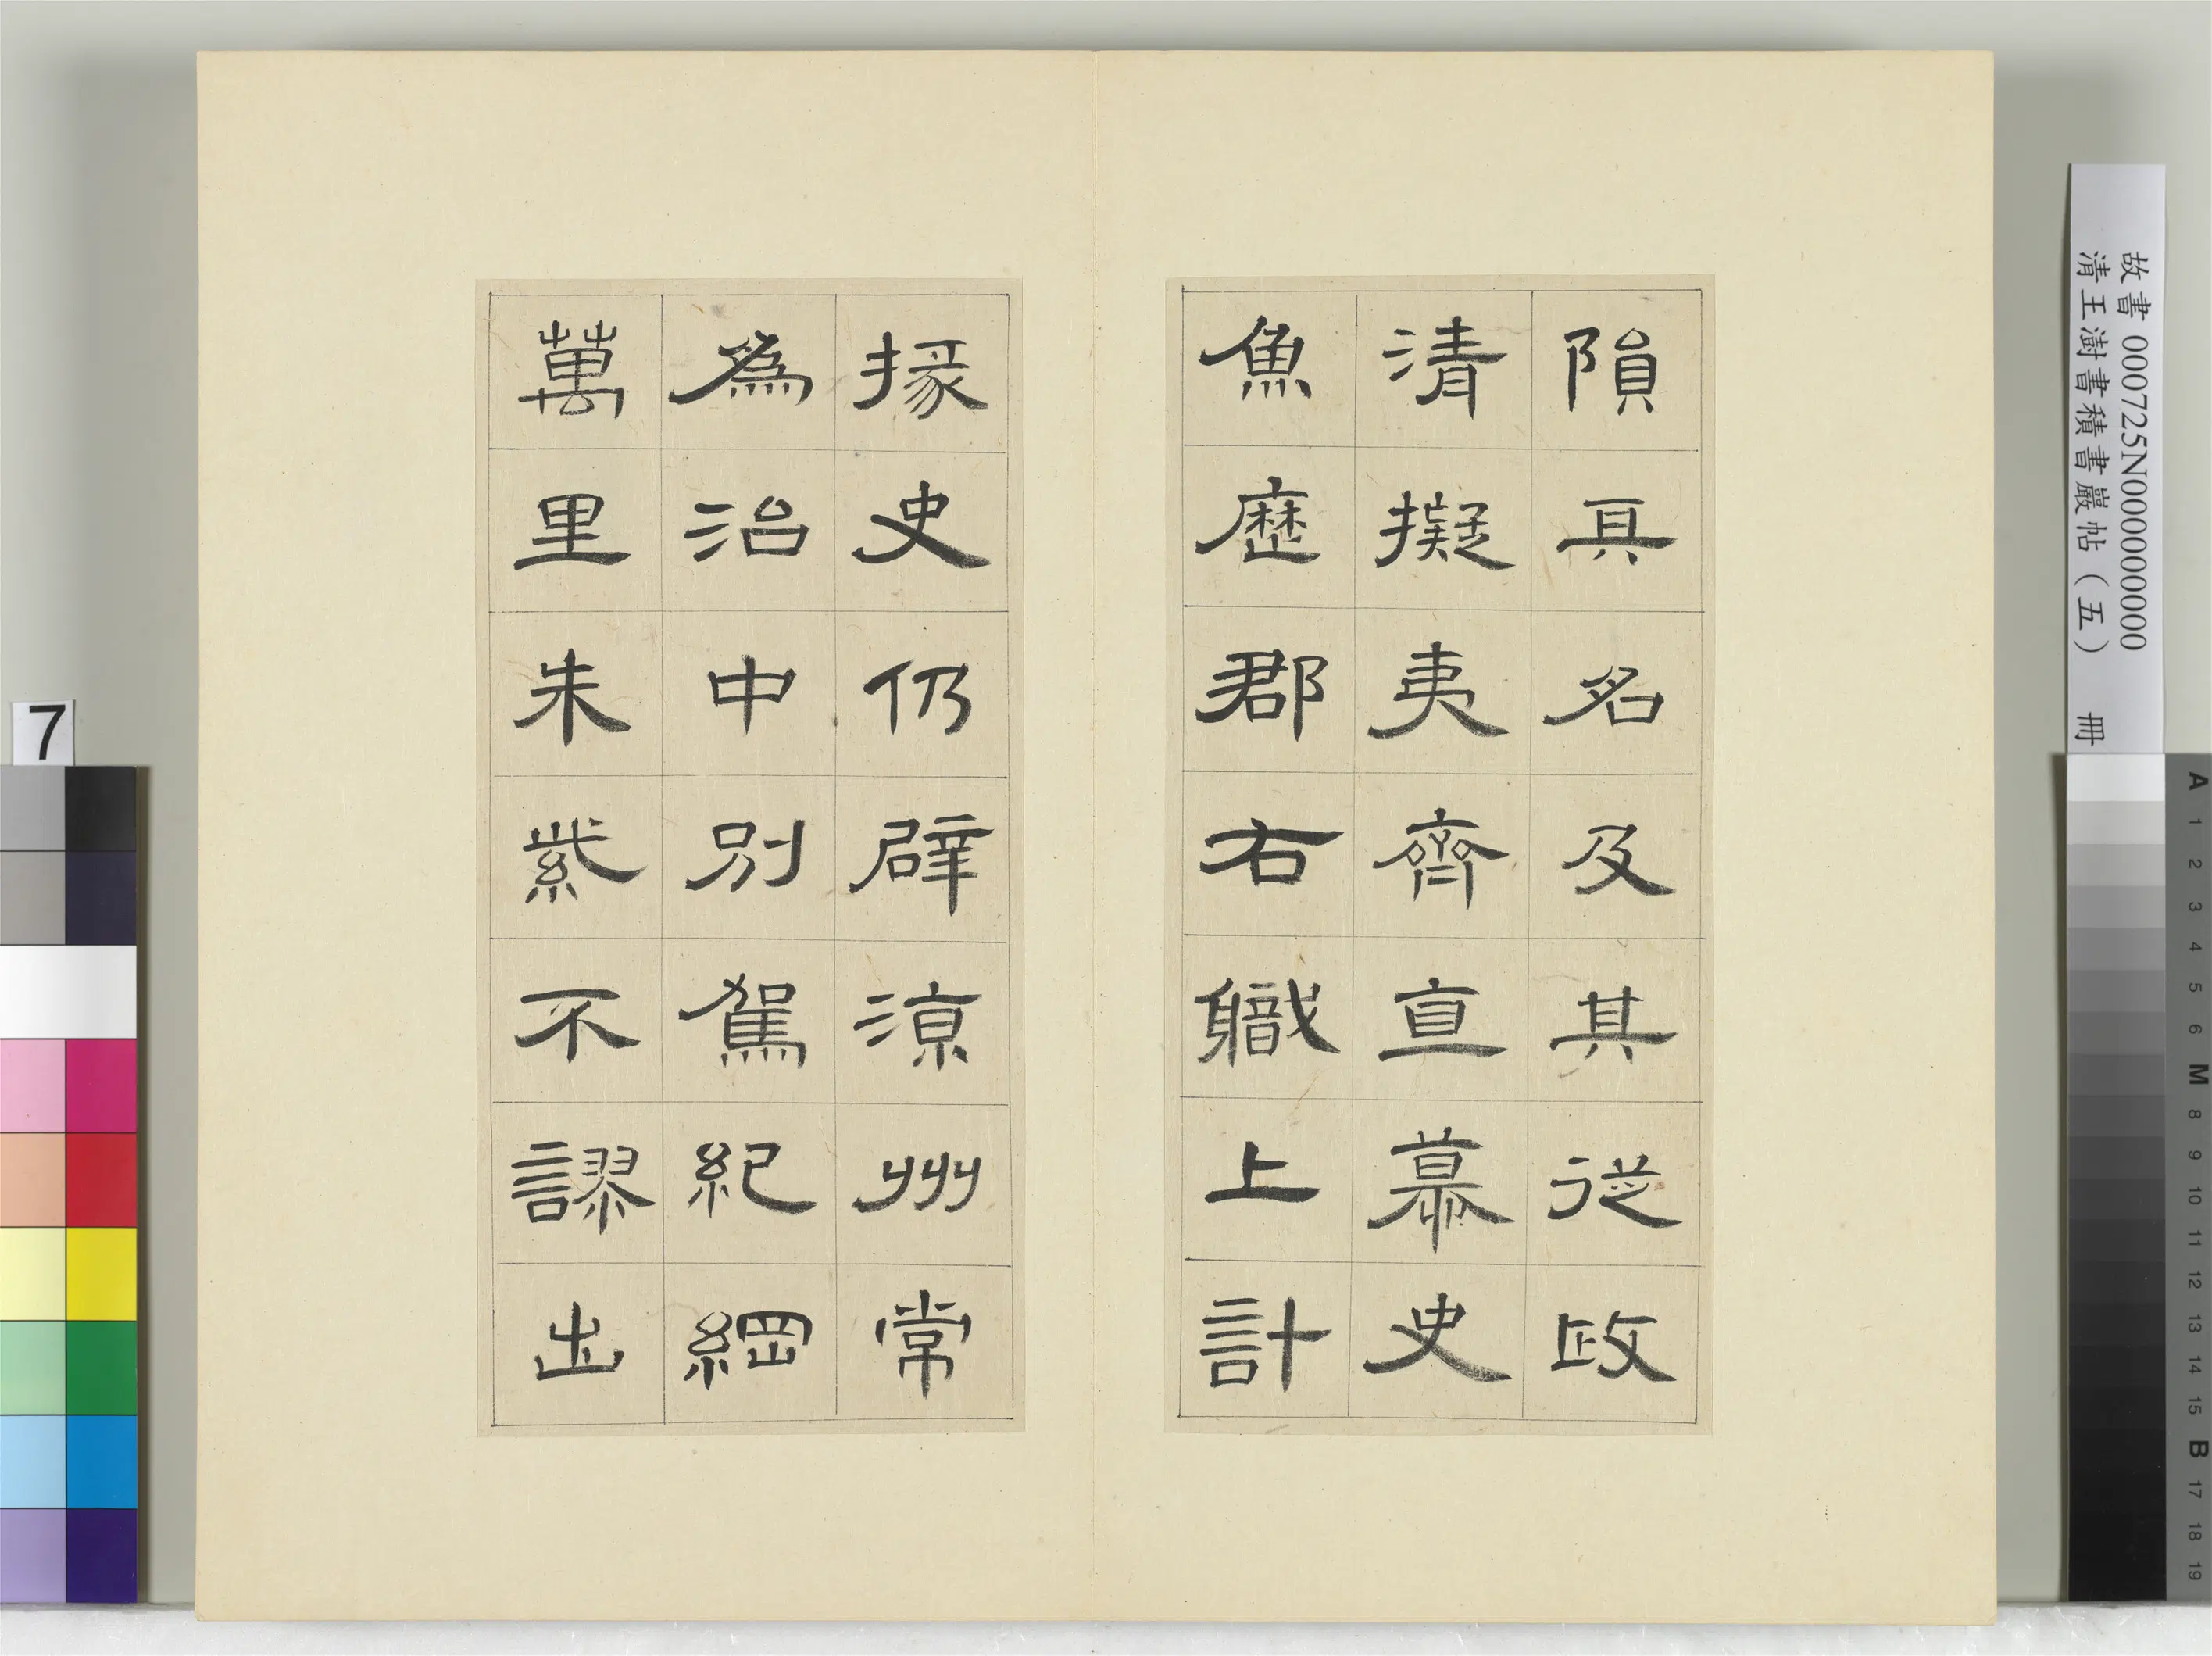 隕其名及其從政
清擬夷齊直慕史
魚歷郡右職上計
掾史仍辟涼州常
為治中別駕紀綱
萬里朱紫不謬出
故書 000725N000000000
清王澍書積書巖帖（五） 冊
7
A 1 2 3 4 5 6 M 8 9 10 11 12 13 14 15 B 17 18 19